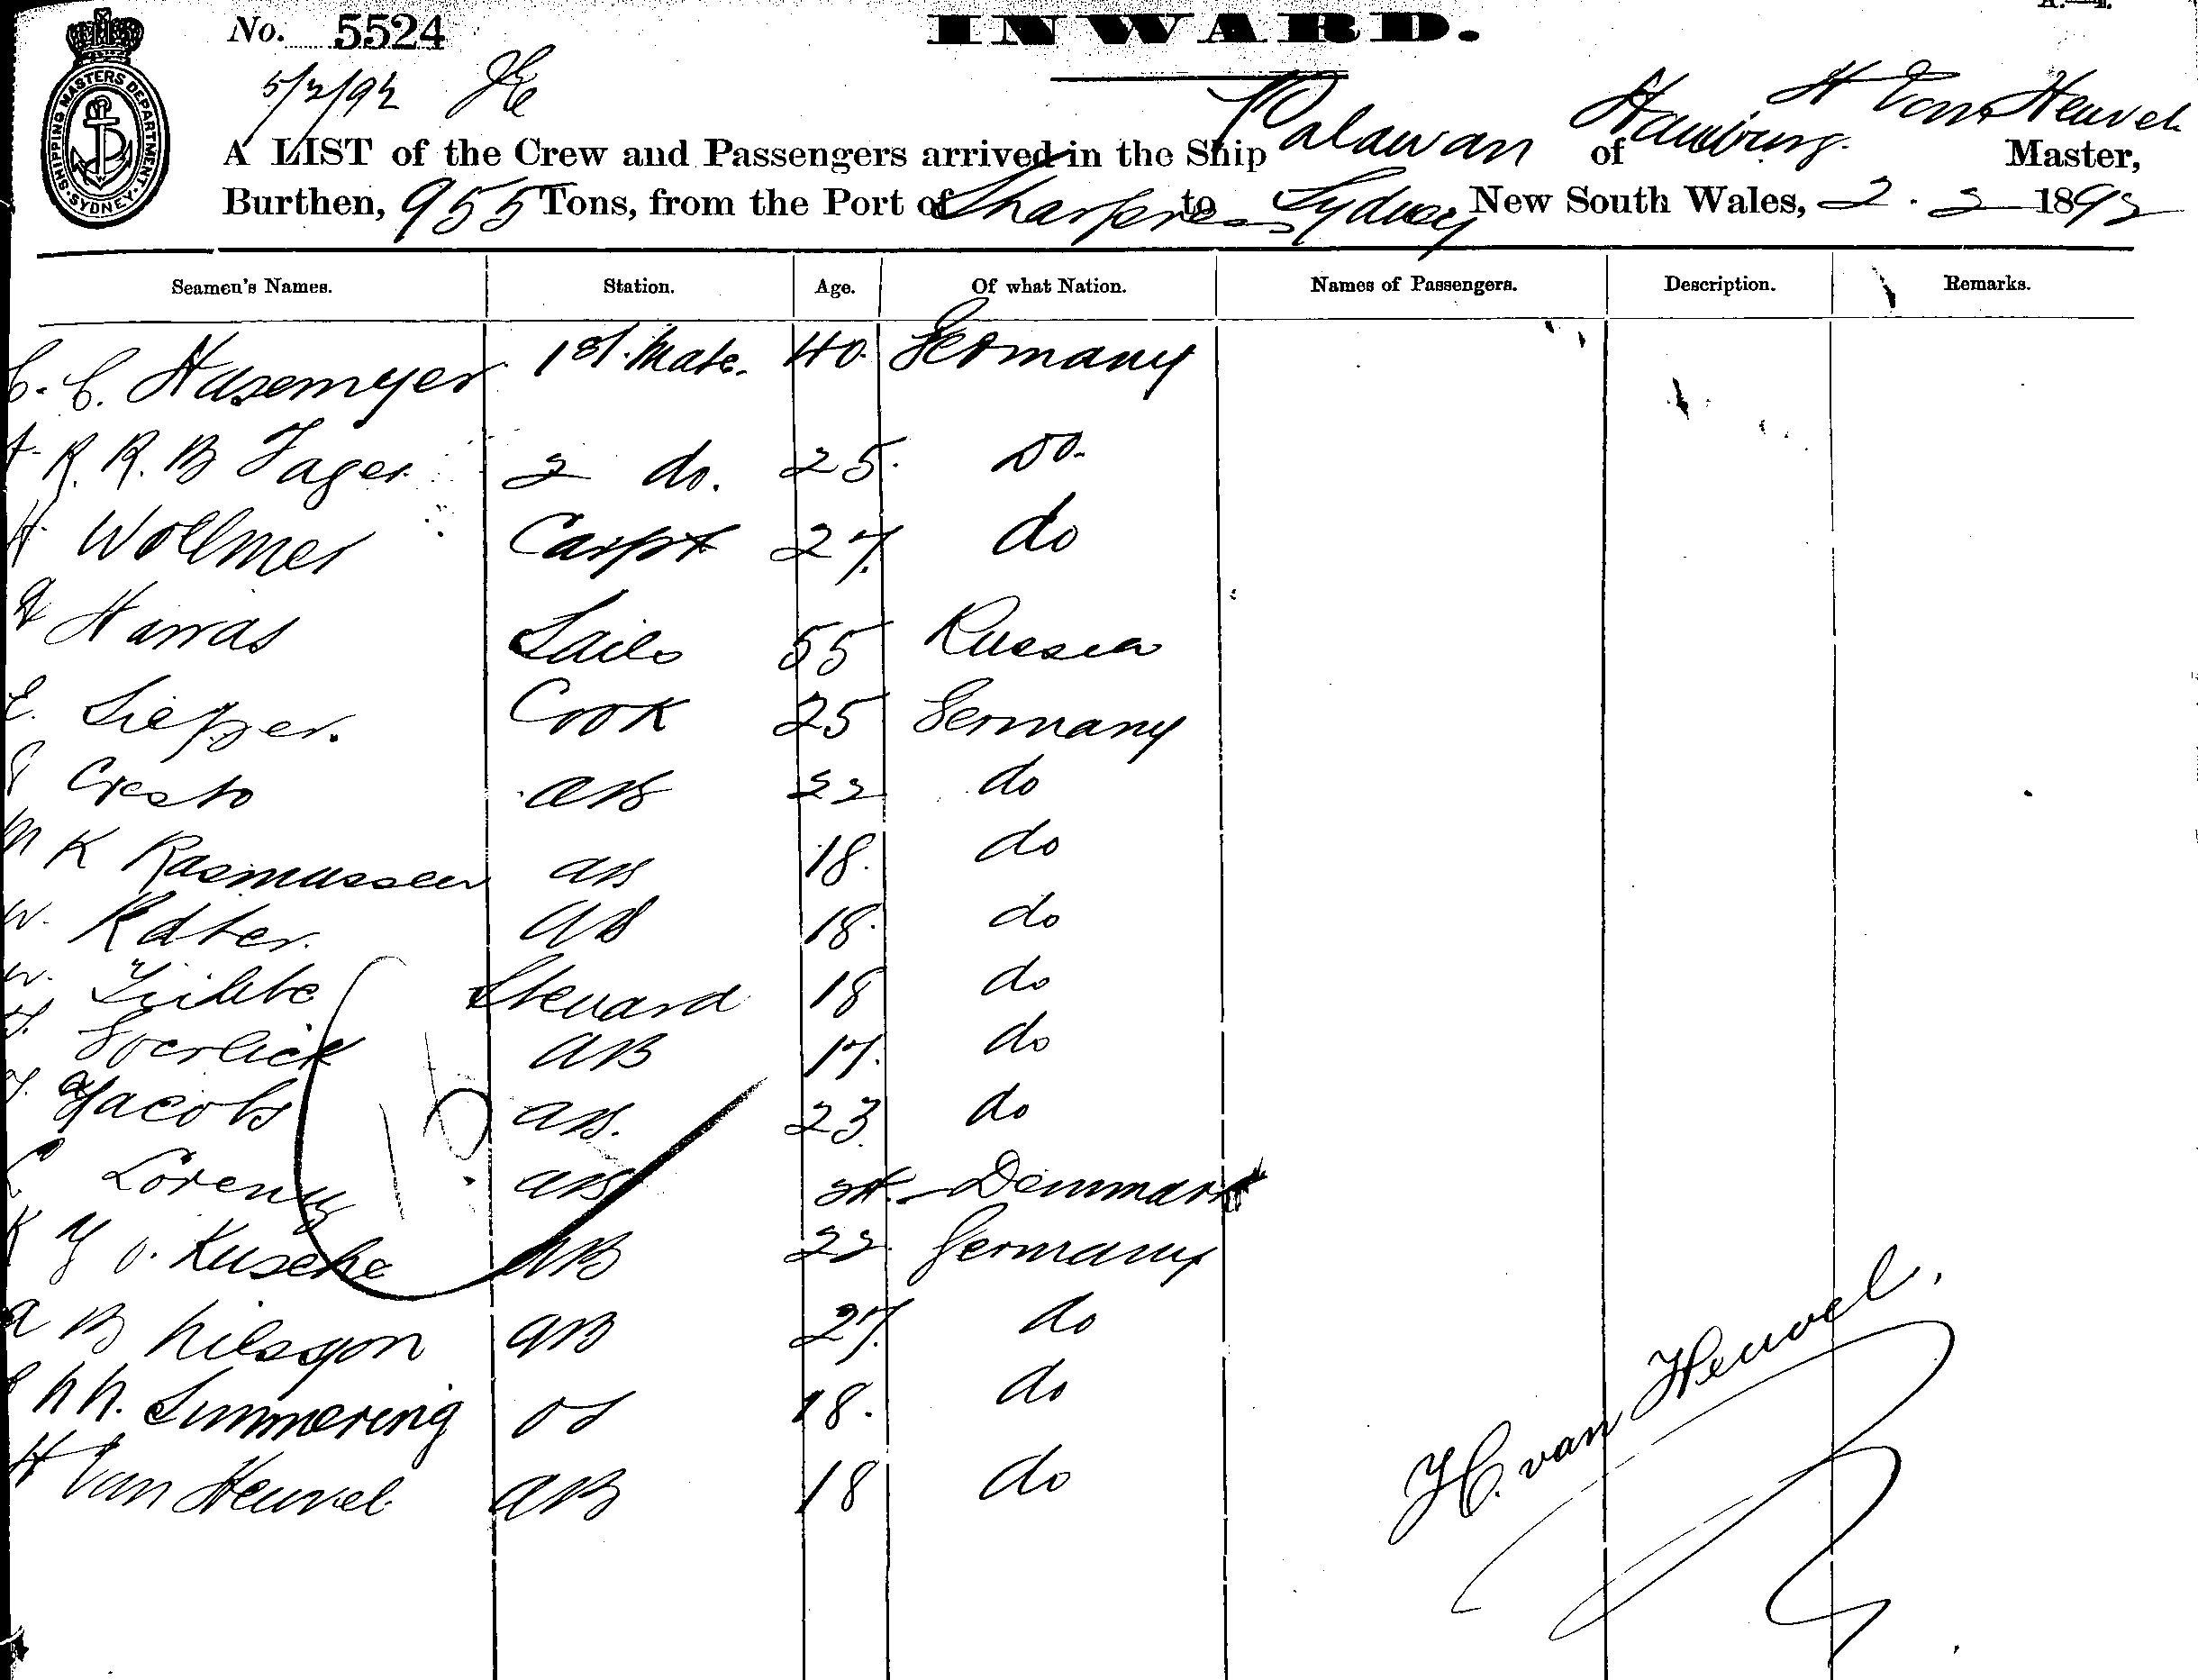 No. 5524
INWARD.
5/2/92
SHIPPING MASTERS DEPARTMENT. SYDNEY.
H Van Heuvel
A LIST of the Crew and Passengers arrived in the Ship Palawan of Hamburg. Master,
Burthen, 955 Tons, from the Port of to Sydney New South Wales, 2. 2 1892
Seamen's Names. Station. Age. Of what Nation. Names of Passengers. Description. Remarks.
C. C. Hasemeyer 1st. Mate. 40. Germany
R. B Jager 2 do. 25. Do.
H Wollmer Carpt 27. do
Harras Sailo 55 Russia
E. Cook 25 Germany
Cresto AB 22 do
M K Rasmussen AB 18. do
W. AB 18. do
W. Steuard 18 do
AB 17. do
Jacobs AB. 23. do
Lorenz AB Denmark
K AB 22. Germany
A B Nilsson AB 27. do
Simmering OS 18. do
H Van Heuvel AB 18 do
16
H. van Heuvel.